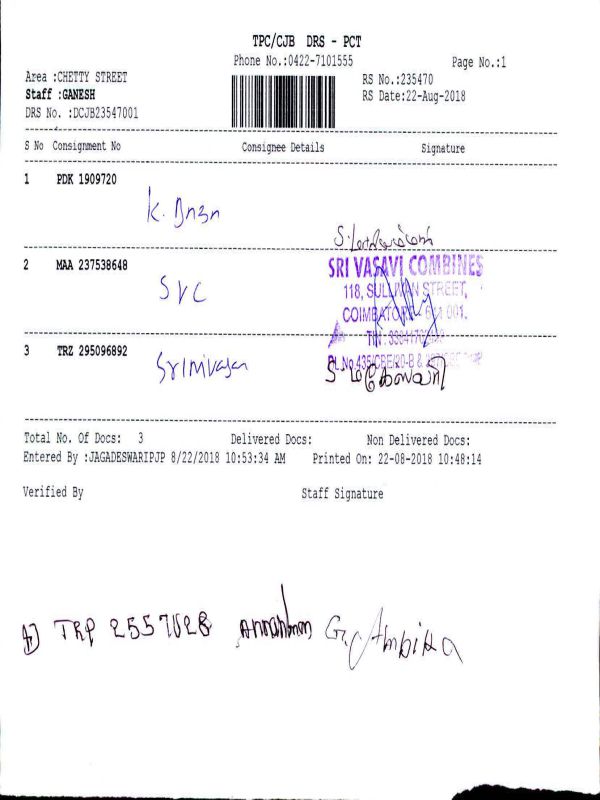 TPC/CJB DRS - PCT
Phone No.:0422-7101555
Page No.:1
Area :CHETTY STREET
RS No.:235470
Staff :GANESH
RS Date:22-Aug-2018
DRS No. :DCJB23547001
S No Consignment No Consignee Details Signature
1 PDK 1909720
K.
2 MAA 237538648
SVC
SRI VASAVI COMBINES
118, SULLIVAN STREET,
3 TRZ 295096892
Srinivasan
Total No. Of Docs: 3 Delivered Docs: Non Delivered Docs:
Entered By :JAGADESWARIPJP 8/22/2018 10:53:34 AM Printed On: 22-08-2018 10:48:14
Verified By Staff Signature
4) TRP G. Ambika